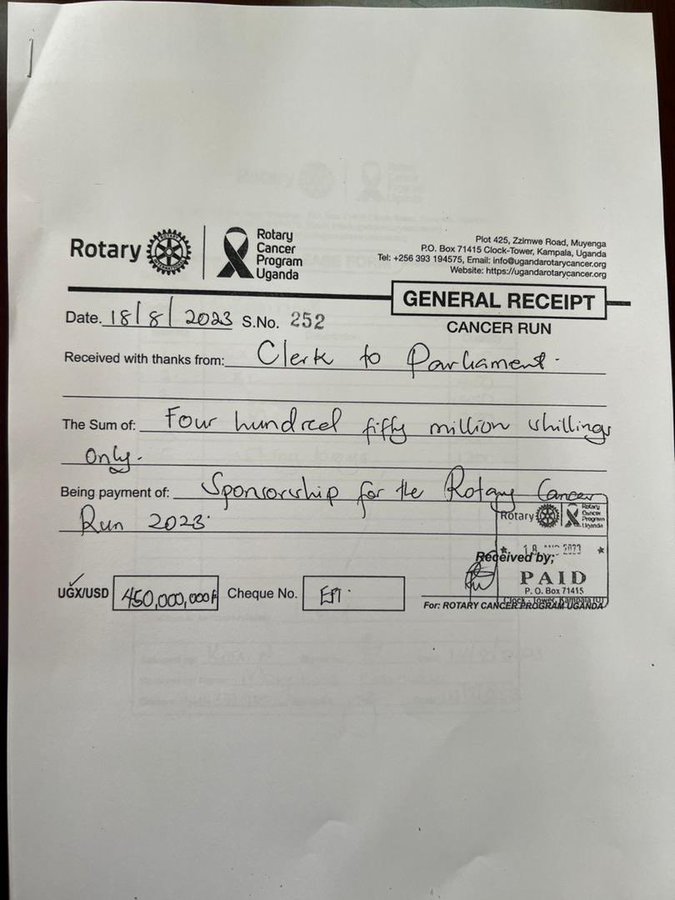 Rotary
Rotary
Cancer
Program
Uganda
Plot 425, Zzimwe Road, Muyenga
P.O. Box 71415 Clock-Tower, Kampala, Uganda
Tel: +256 393 194575, Email: info@ugandarotarycancer.org
Website: https://ugandarotarycancer.org
GENERAL RECEIPT
CANCER RUN
Date. 18/8/2023 S.No. 252
Received with thanks from: Clerk to Parliament.
The Sum of: Four hundred fifty million shillings
only.
Being payment of: Sponsorship for the Rotary Cancer
Run 2023.
Rotary
Rotary
Cancer
Program
Uganda
2023
Received by;
PAID
P. O. Box 71415
Clock - Tower, Kampala (U)
UGX/USD 450,000,000/= Cheque No. EFT.
For: ROTARY CANCER PROGRAM UGANDA